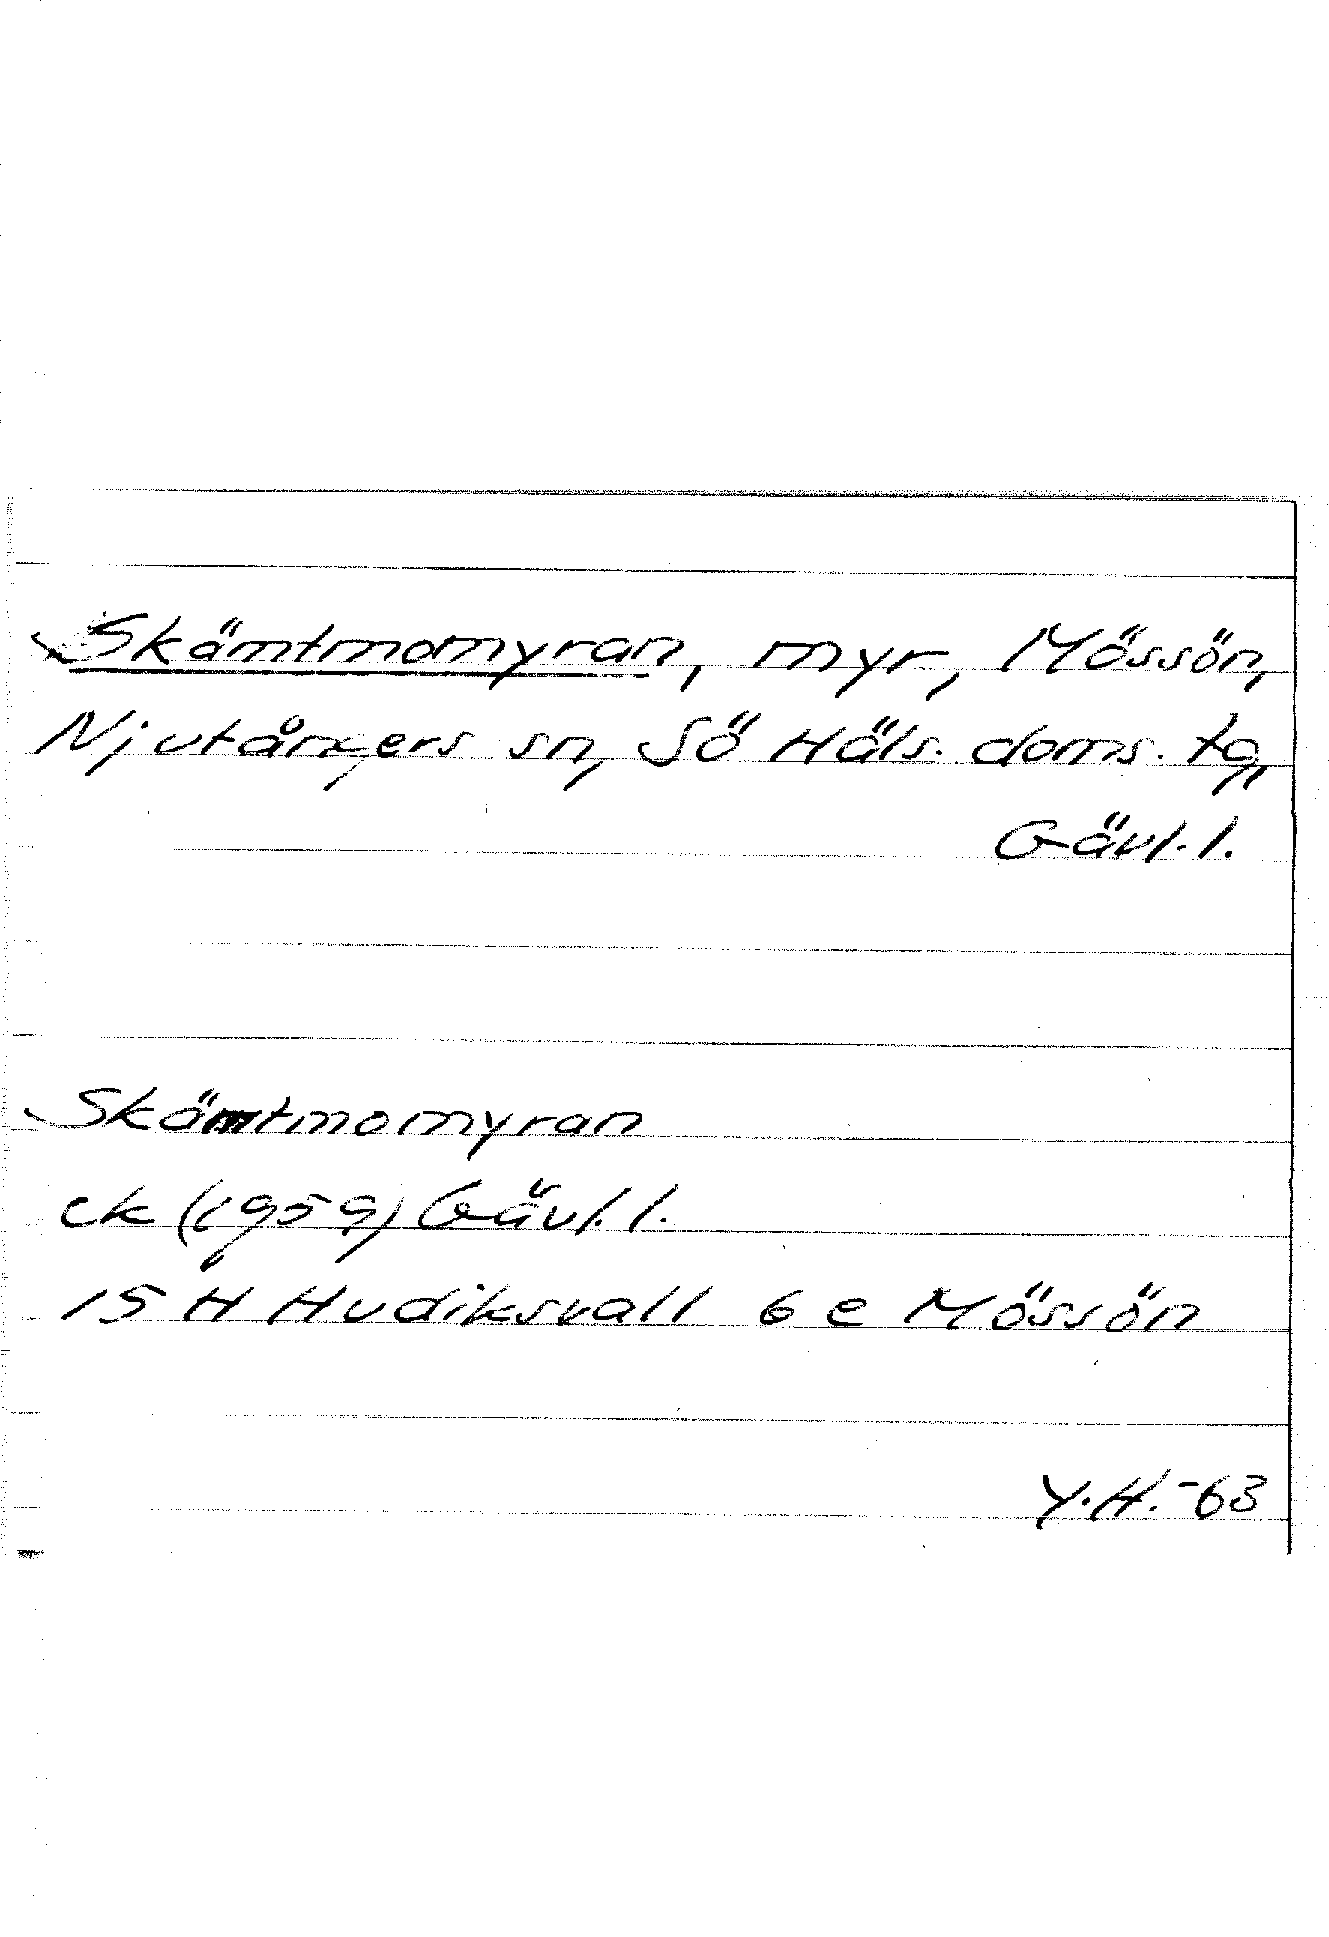 Skämtmomyran, myr, Mössön,
Njutångers sn, Sö Häls. doms. tg,
Gävl. l.
Skämtmomyran
ek (1959) Gävl. l.
15 H Hudiksvall 6 e Mössön
Y.H. -63